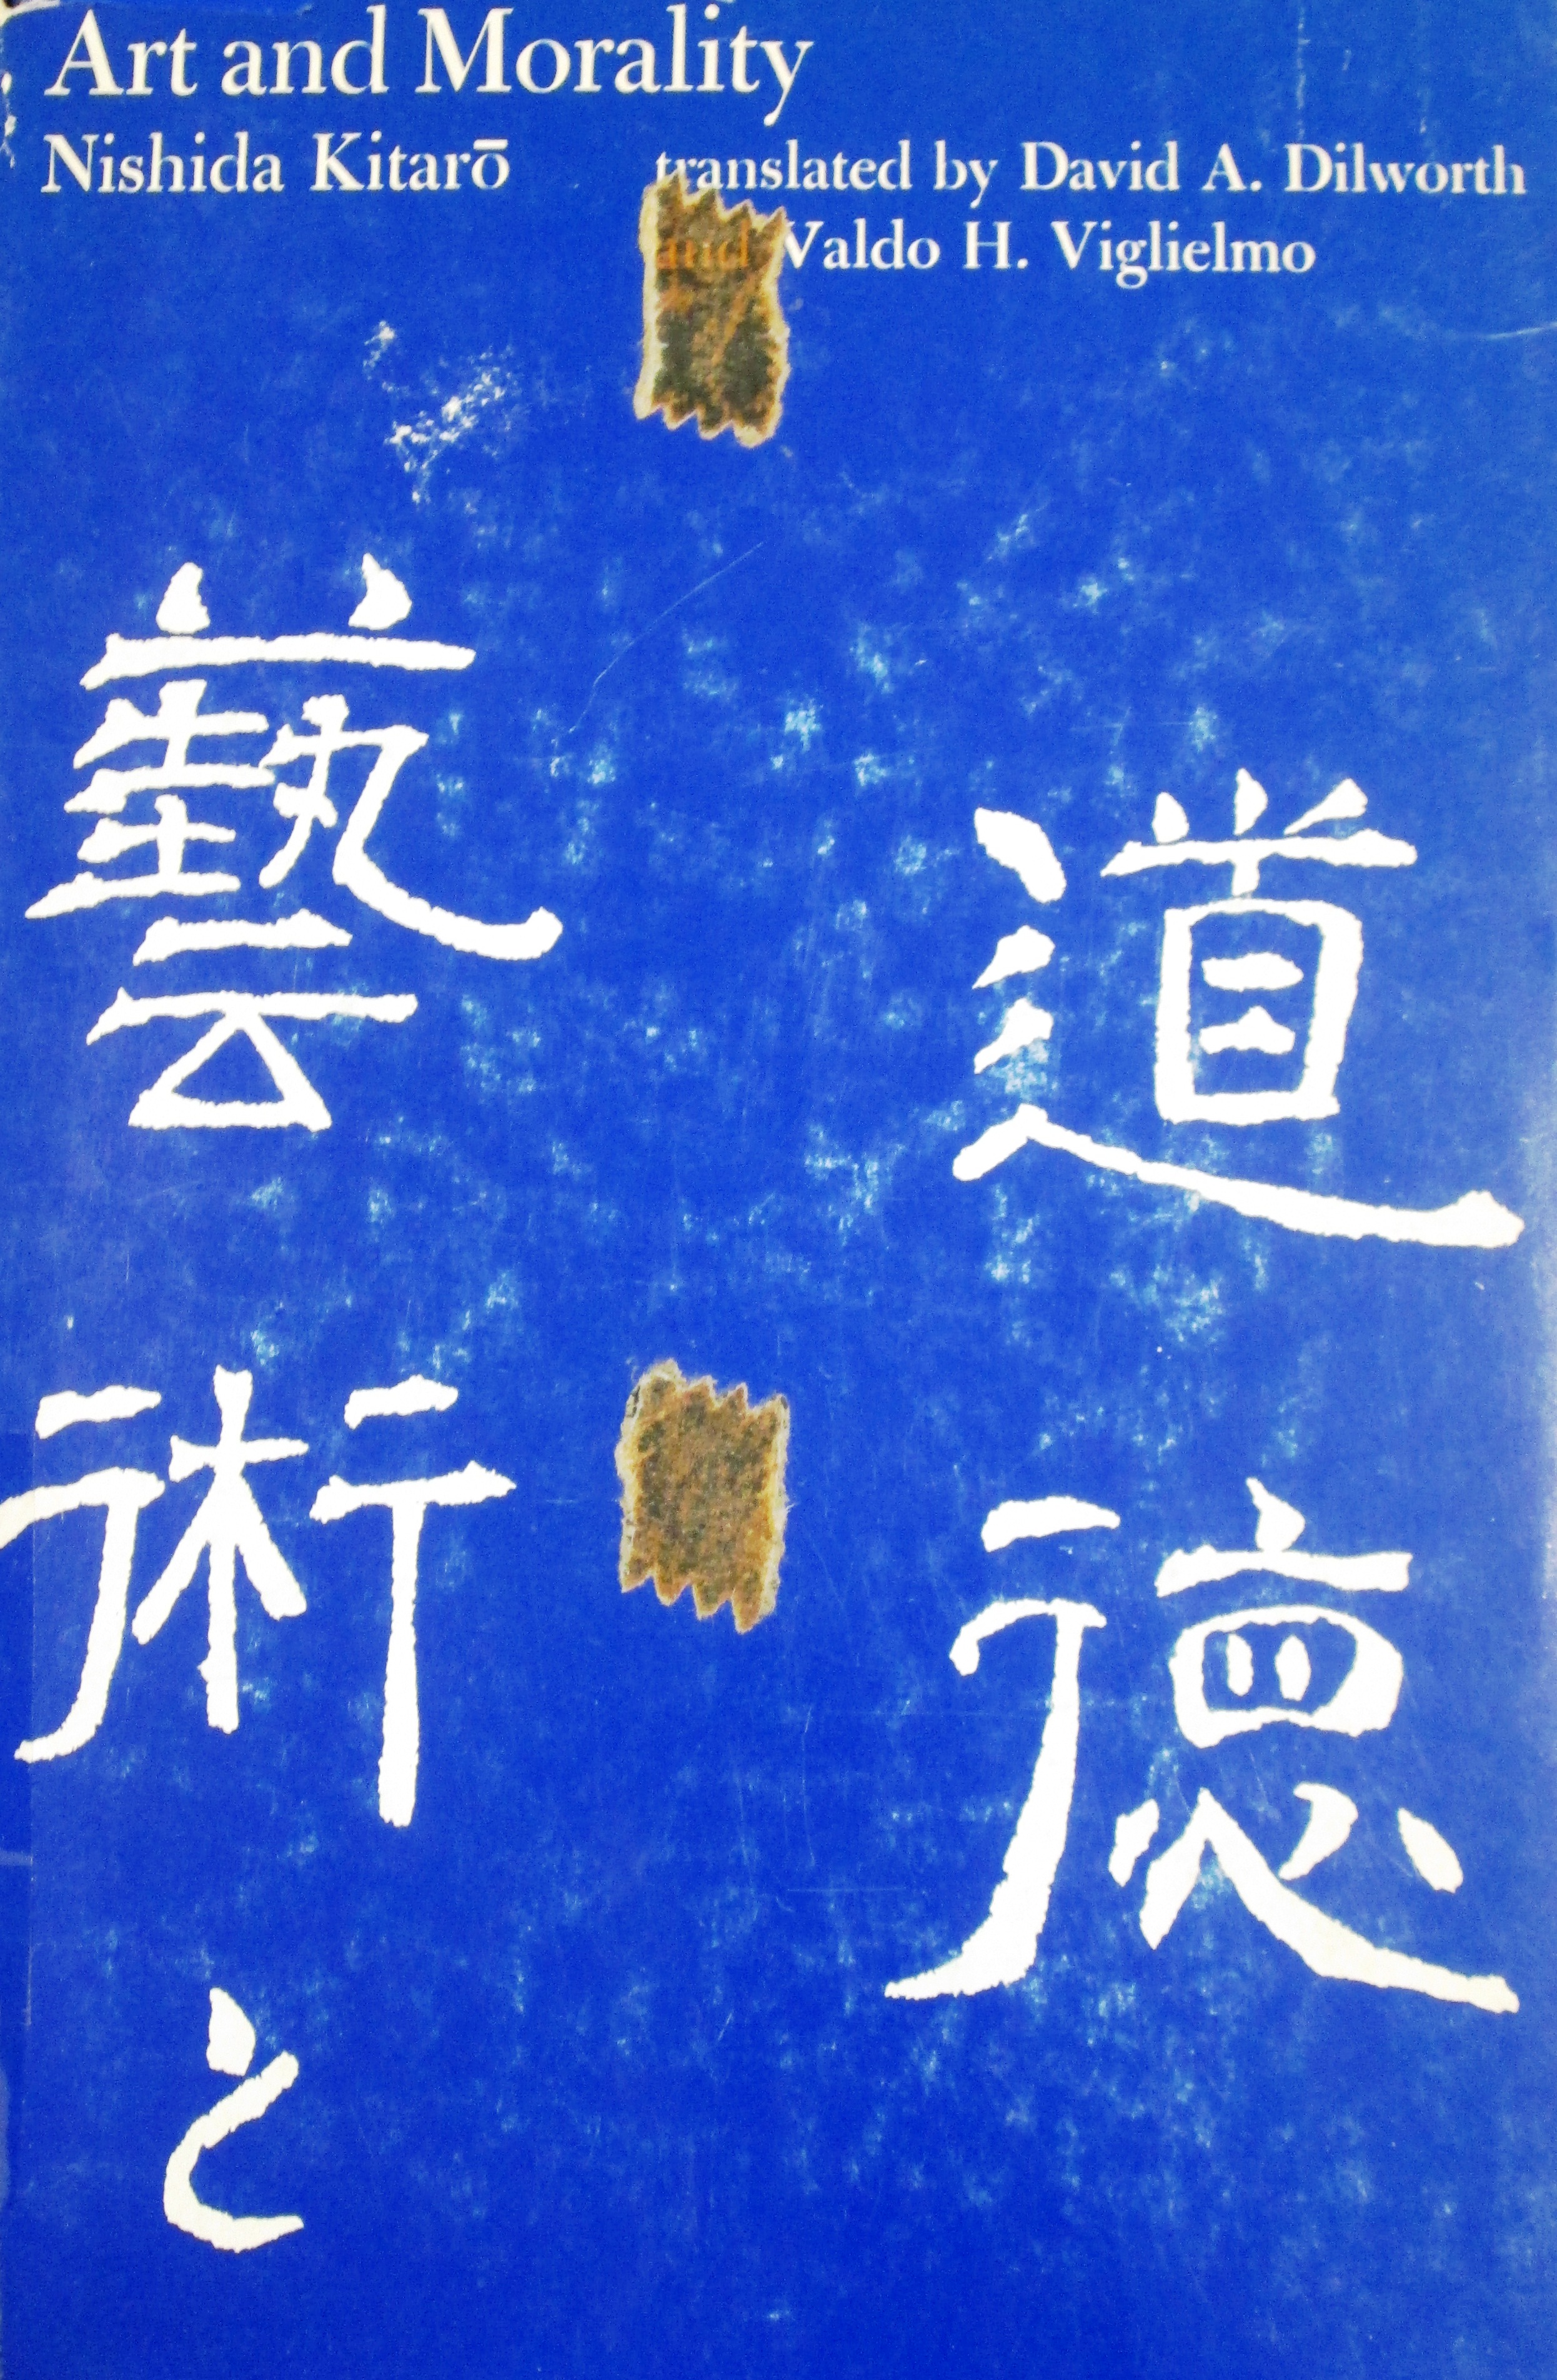 Art and Morality
Nishida Kitarō
translated by David A. Dilworth
and Valdo H. Viglielmo
藝術と
道德